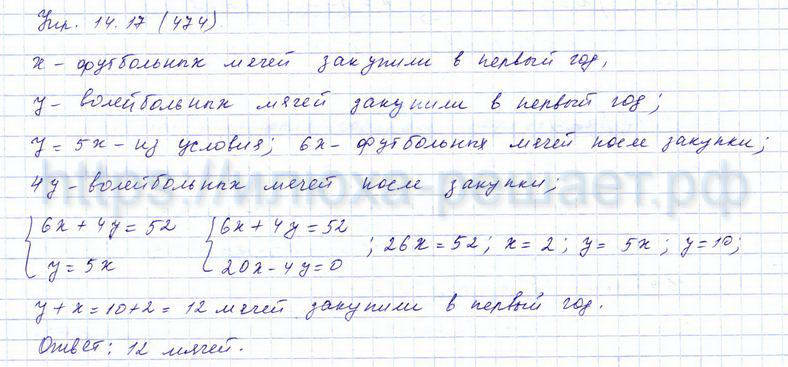 Упр. 14.17 (474)
x - футбольных мячей закупили в первый год,
y - волейбольных мячей закупили в первый год;
y = 5x - из условия; 6x - футбольных мячей после закупки;
https://илюха-решает.рф
4y - волейбольных мячей после закупки;
{6x + 4y = 52 {6x + 4y = 52 ; 26x = 52; x = 2; y = 5x; y = 10;
y = 5x 20x - 4y = 0
y + x = 10 + 2 = 12 мячей закупили в первый год.
Ответ: 12 мячей.